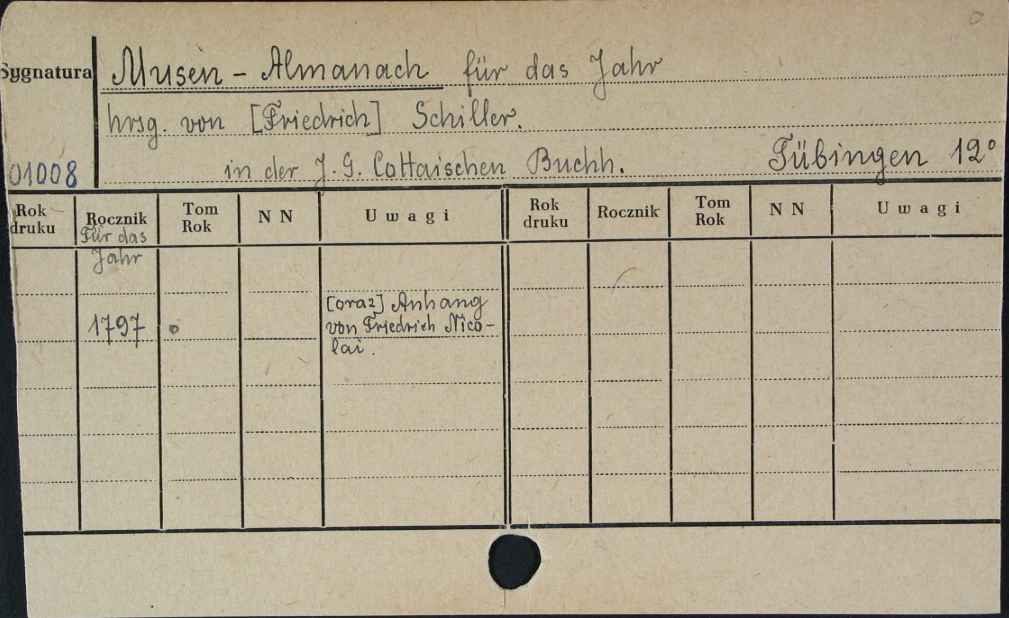 Sygnatura
Musen - Almanach für das Jahr
hrsg. von [Friedrich] Schiller.
01008
in der J. G. Cottaischen Buchh. Tübingen 12°
Rok druku Rocznik Tom Rok N N Uwagi Rok druku Rocznik Tom Rok N N Uwagi
Für das
Jahr
[oraz] Anhang
1797 von Friedrich Nico-
lai.